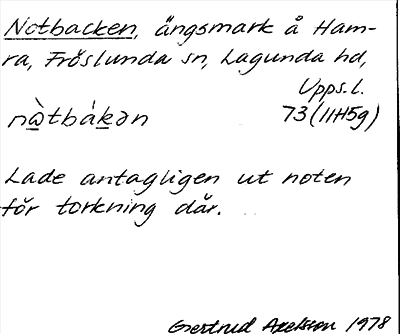 Notbacken, ängsmark å Ham-
ra, Fröslunda sn, Lagunda hd,
Upps.l.
nὼtbák̲ən 73 (11H5g)
Lade antagligen ut noten
för torkning där.
Gertrud Axelsson 1978